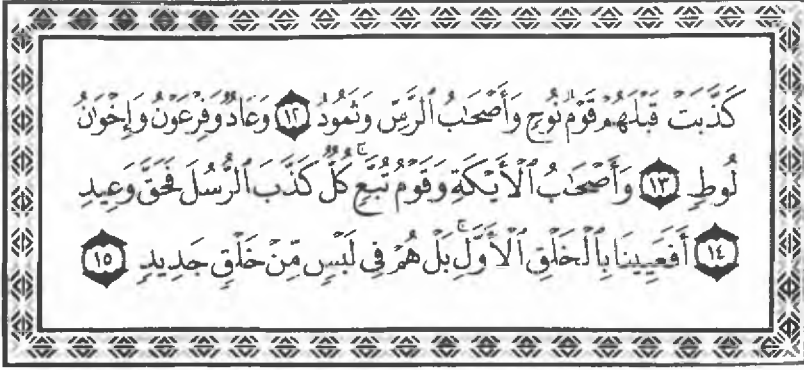 كَذَّبَتْ قَبْلَهُمْ قَوْمُ نُوحٍ وَأَصْحَٰبُ ٱلرَّسِّ وَثَمُودُ ١٢ وَعَادٌ وَفِرْعَوْنُ وَإِخْوَٰنُ
لُوطٍ ١٣ وَأَصْحَٰبُ ٱلْأَيْكَةِ وَقَوْمُ تُبَّعٍ ۚ كُلٌّ كَذَّبَ ٱلرُّسُلَ فَحَقَّ وَعِيدِ
١٤ أَفَعَيِينَا بِٱلْخَلْقِ ٱلْأَوَّلِ ۚ بَلْ هُمْ فِى لَبْسٍ مِّنْ خَلْقٍ جَدِيدٍ ١٥